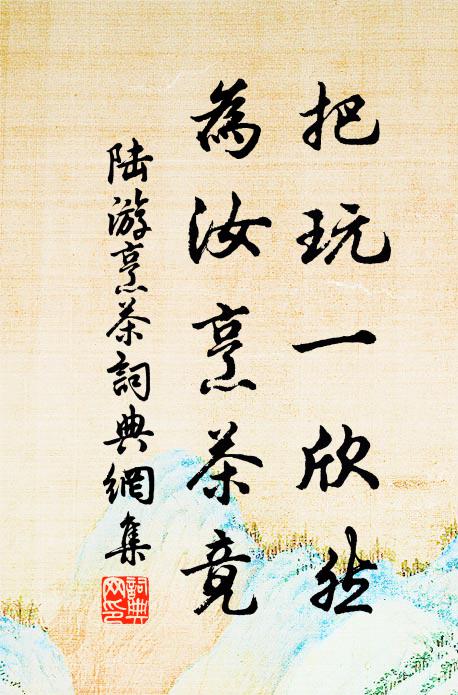 把玩一欣然
為汝烹茶竟
陆游烹茶詞典網集
詞典
网印